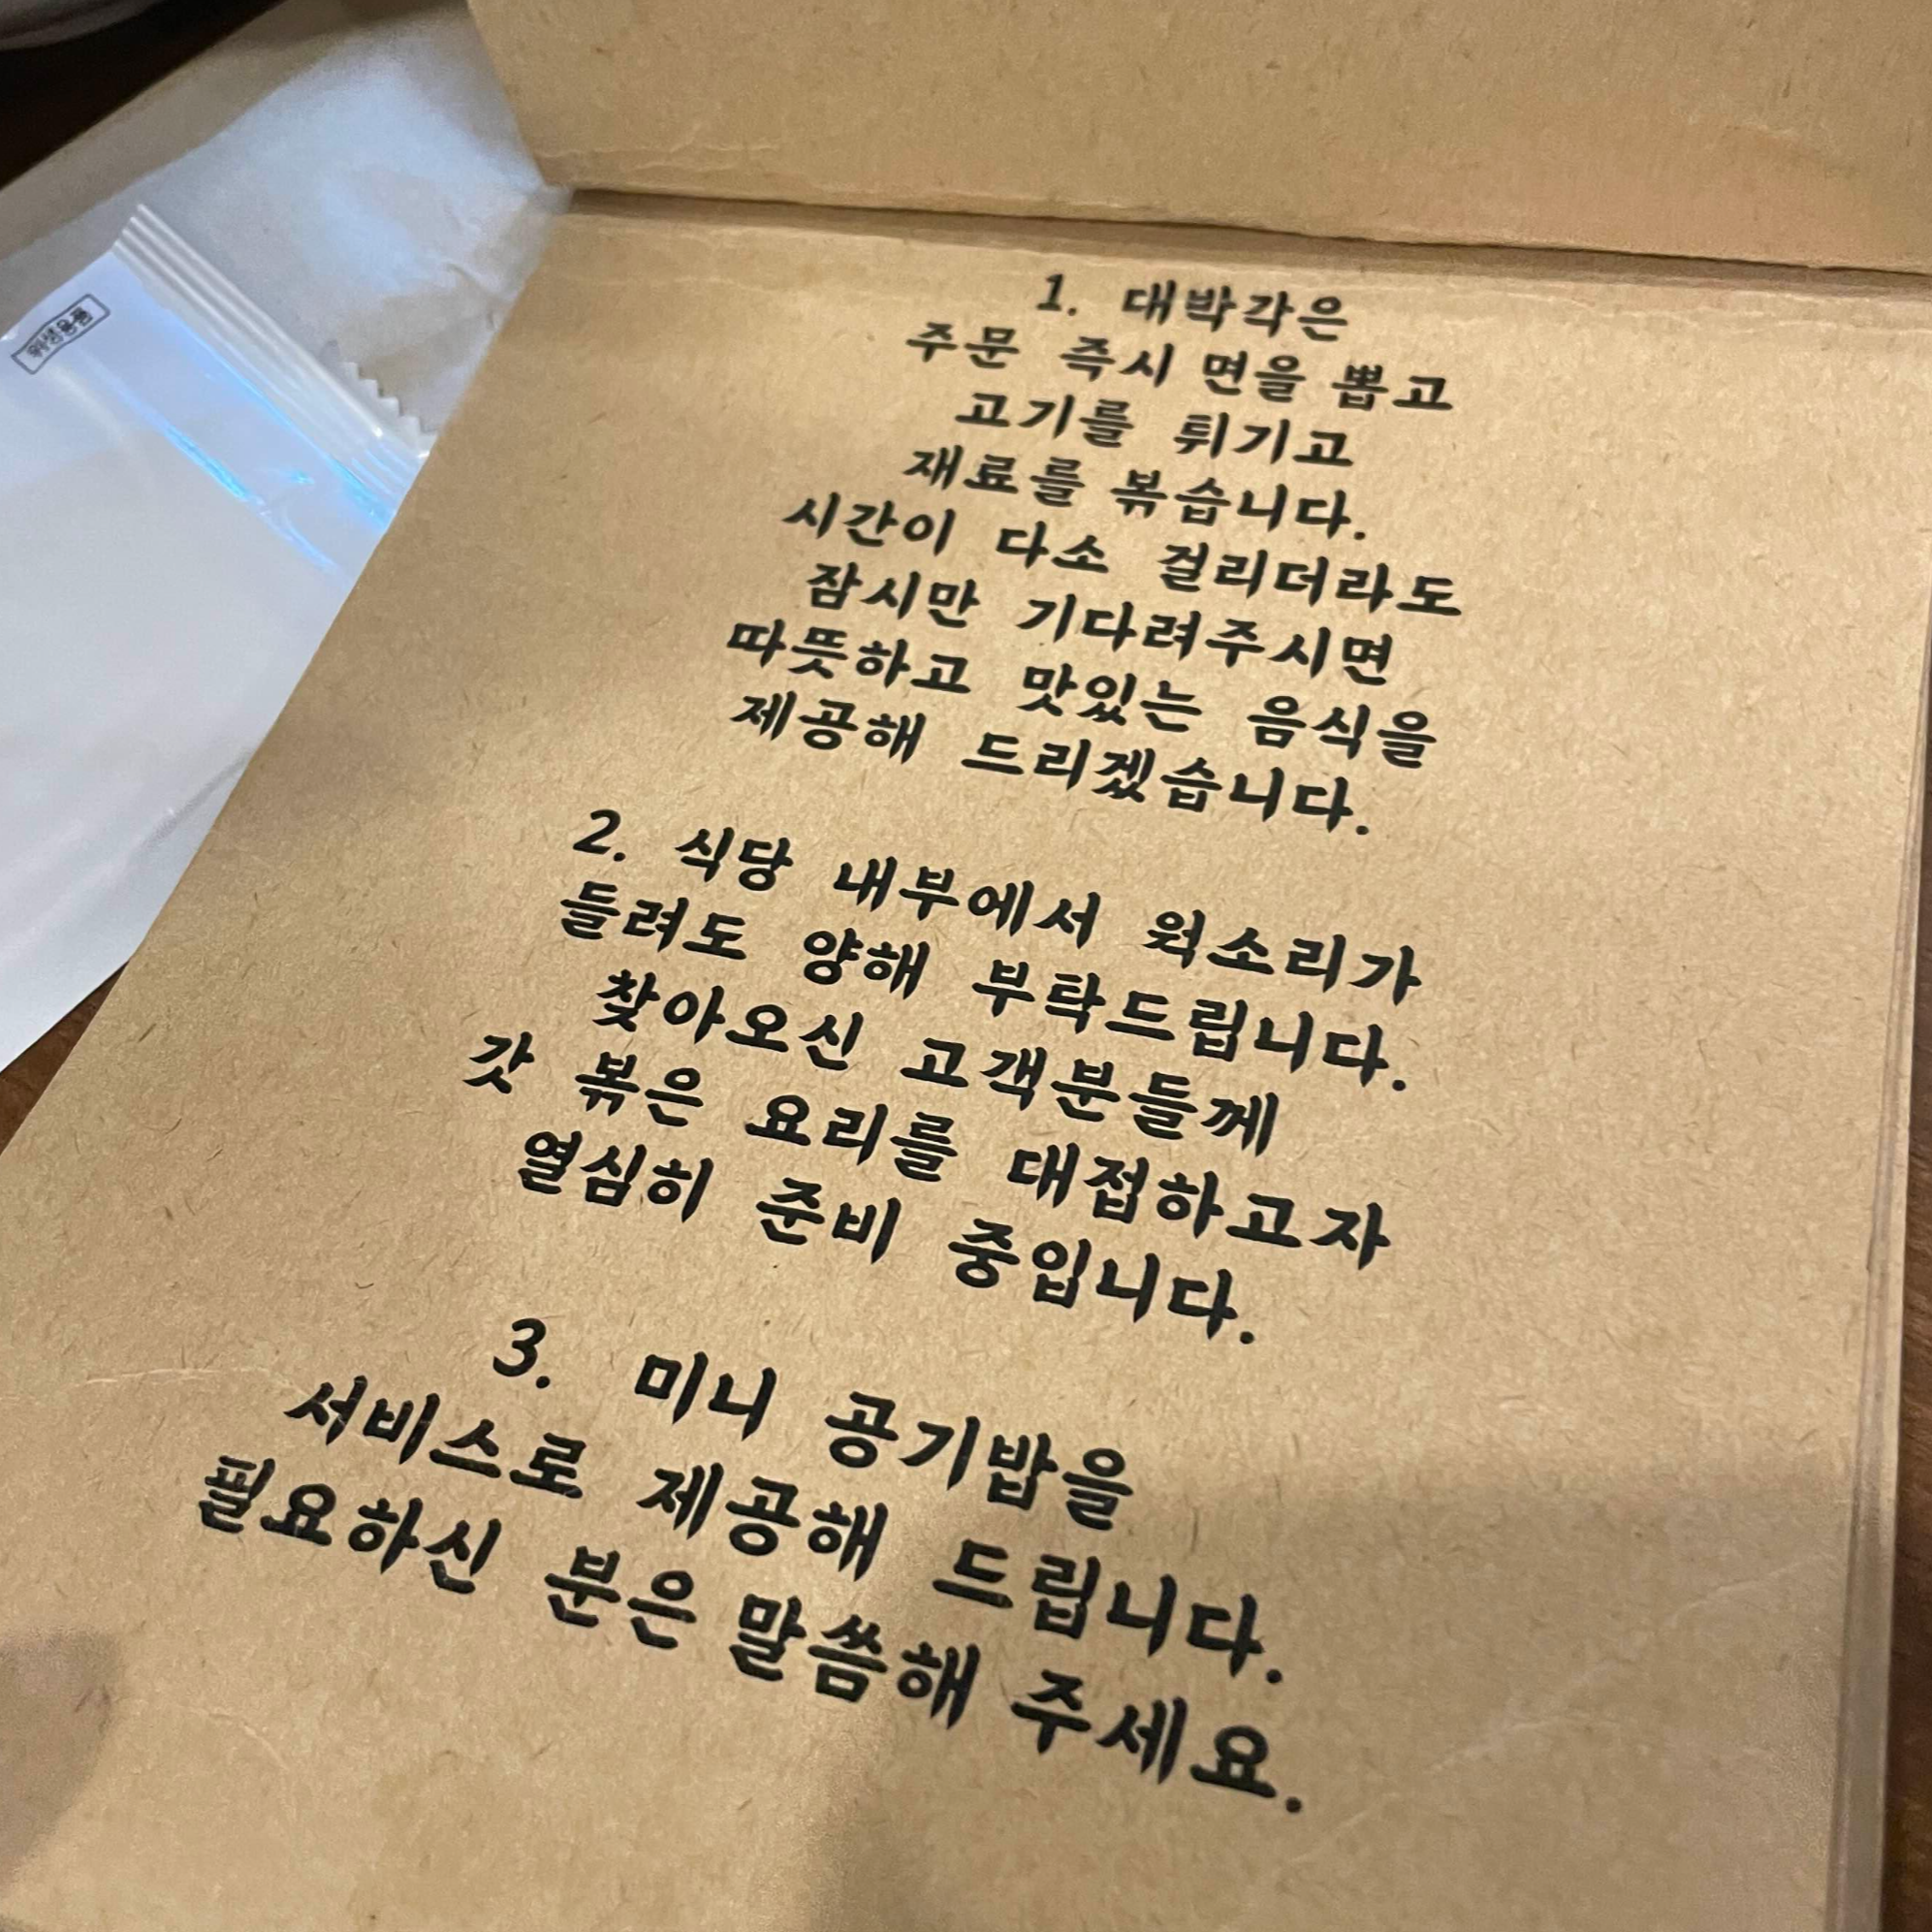 위생용품
1. 대박각은
주문 즉시 면을 뽑고
고기를 튀기고
재료를 볶습니다.
시간이 다소 걸리더라도
잠시만 기다려주시면
따뜻하고 맛있는 음식을
제공해 드리겠습니다.
2. 식당 내부에서 웍소리가
들려도 양해 부탁드립니다.
찾아오신 고객분들께
갓 볶은 요리를 대접하고자
열심히 준비 중입니다.
3. 미니 공기밥을
서비스로 제공해 드립니다.
필요하신 분은 말씀해 주세요.